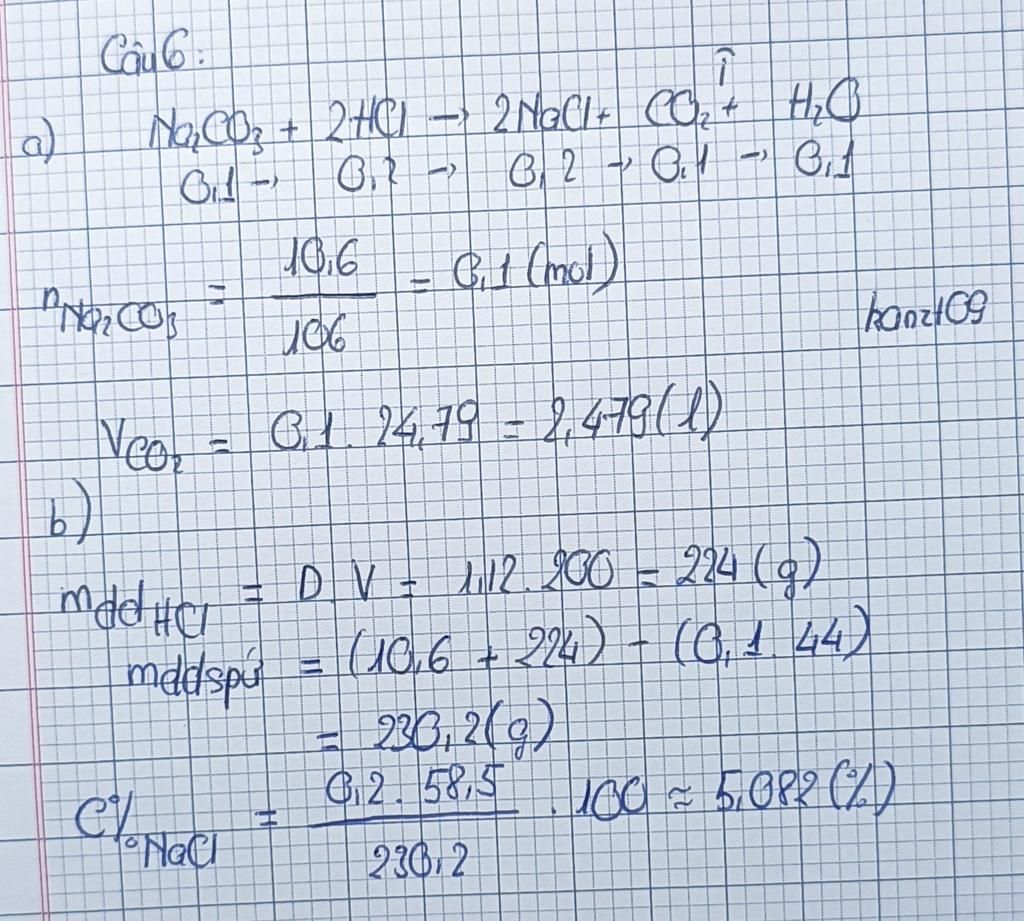 Câu 6:
a) Na₂CO₃ + 2HCl → 2NaCl + CO₂↑ + H₂O
0,1 → 0,2 → 0,2 → 0,1 → 0,1
nNa₂CO₃ = 10,6 / 106 = 0,1 (mol)
VCO₂ = 0,1 . 24,79 = 2,479 (l)
b)
mdd HCl = D.V = 1,12 . 200 = 224 (g)
mddspứ = (10,6 + 224) - (0,1 . 44)
= 230,2 (g)
C%NaCl = 0,2 . 58,5 / 230,2 . 100 ≈ 5,082 (%)